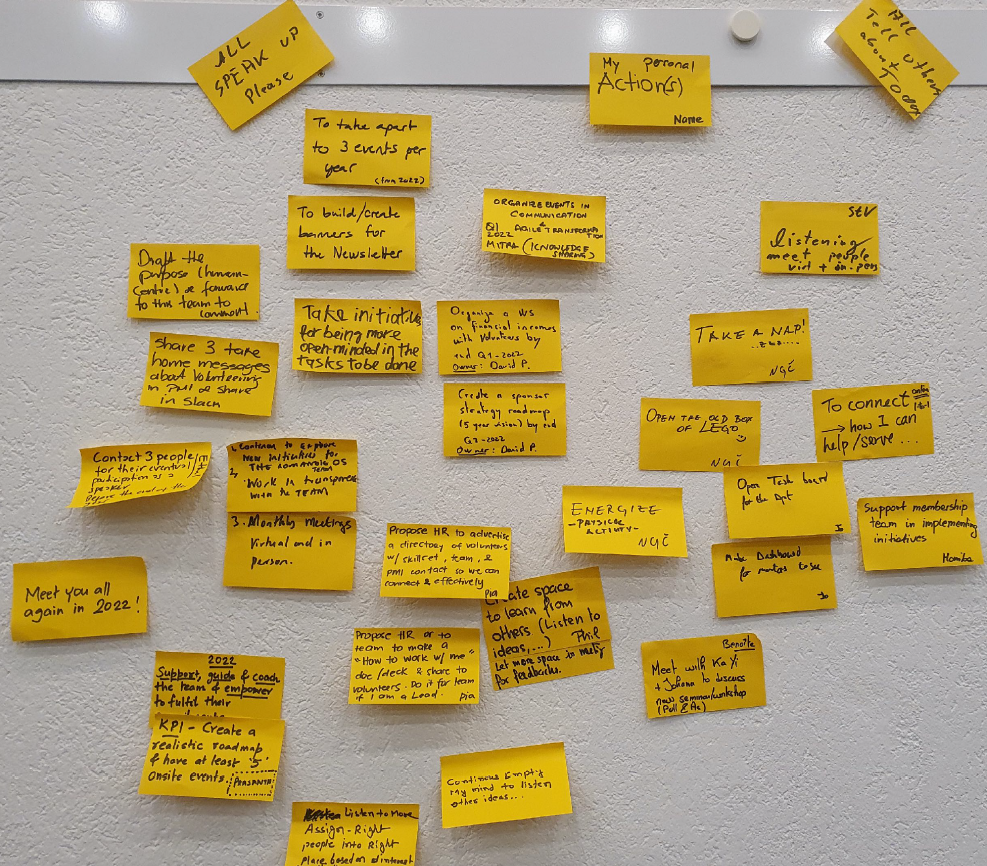 ALL
SPEAK UP
Please
My personal
Action(s)
Name
All
Tell others
about
Today
To take apart
to 3 events per
year
(from 2022)
To build/create
banners for
the Newsletter
ORGANIZE EVENTS IN
COMMUNICATION
&
Q1 AGILE TRANSFORMATION
2022
MITRA (KNOWLEDGE
SHARING)
StV
listening
meet people
virt + on-pers
Draft the
purpose (human-
centric) & forward
to this team to
comment.
Take initiative
for being more
open-minded in the
tasks to be done
Organize a WS
on financial incomes
with Volunteers by
end Q1-2022
Owner: David P.
TAKE A NAP!
...ZZZ....
NGC
Share 3 take
home messages
about Volunteering
in PMI & share
in Slack
Create a sponsor
strategy roadmap
(5 year vision) by end
Q2-2022
Owner: David P.
OPEN THE OLD BOX
OF LEGO
NGC
To connect
→ how I can
help/serve ...
Contact 3 people
for their eventual
participation as a
speaker
Before the end of the
1. Continue to explore
new initiatives for
THE ROMANDIE OS
TEAM
2. Work in transparency
WITH the TEAM
3. Monthly meetings
Virtual and in
person.
Open Task board
for the Dpt
Jo
Support membership
team in implementing
initiatives
Monika
ENERGIZE
- PHYSICAL
ACTIVITY -
NGC
Propose HR to advertise
a directory of volunteers
w/ skillset, team, &
PMI contact so we can
connect & effectively
Pia
Make Dashboard
for mentors to see
Jo
Meet you all
again in 2022!
Create space
to learn from
others (Listen to
ideas,...) Phil
Let more space to
for feedbacks.
Propose HR or to
team to make a
"How to work w/ me"
doc/deck & share to
volunteers. Do it for team
if I am a Lead.
Pia
Benoîte
Meet with Ka Yi
+ Johana to discuss
new seminar/workshop
2022
Support, guide & coach
the team & empower
to fulfil their
KPI - Create a
realistic roadmap
& have at least '5'
onsite events.
PRASANTH
Continous Empty
My mind to listen
other ideas...
Listen to More
Assign - Right
people into Right
place based on interest